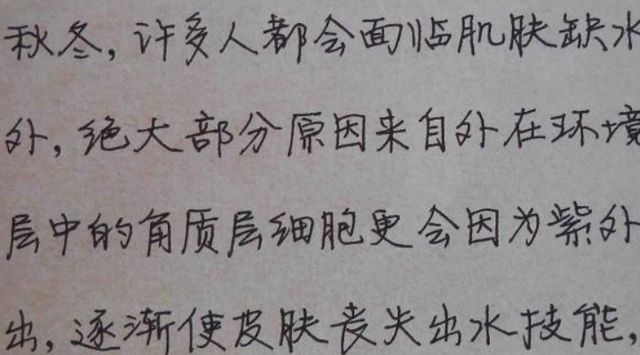 秋冬,许多人都会面临肌肤缺水
外,绝大部分原因来自外在环境
层中的角质层细胞更会因为紫外
出,逐渐使皮肤丧失出水技能,